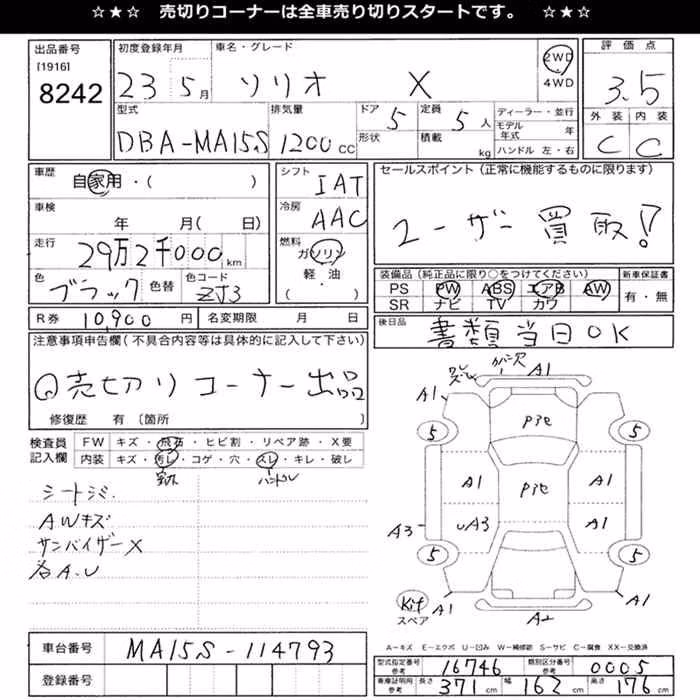 ☆★☆ 売切りコーナーは全車売り切りスタートです。 ☆★☆
出品番号 初度登録年月 車名・グレード 2WD 評価点
[1916] 8242 23 5月 ソリオ X 4WD 3.5
型式 排気量 ドア 定員 ディーラー・並行 外装 内装
DBA-MA15S 1200cc 5 5人 モデル年式 年 C C
形状 積載 kg ハンドル 左・右
車歴 自家用・( ) シフト IAT セールスポイント(正常に機能するものに限ります)
車検 年 月( 日) 冷房 AAC ユーザー買取!!
走行 29万2千000km 燃料 ガソリン
軽・油
( ・ )
色 ブラック 色替 色コード ZJ3
装備品(純正品に限り○をつけてください) 新車保証書
PS PW ABS エアB AW 有・無
SR ナビ TV カワ
R券 10,900円 名変期限 月 日 後日品 書類当日OK
注意事項申告欄(不具合内容等は具体的に記入して下さい)
売切りコーナー出品
修復歴 有 〔箇所 〕
検査員記入欄 FW キズ・飛石・ヒビ割・リペア跡・X要
内装 キズ・汚レ・コゲ・穴・スレ・キレ・破レ
ハンドル
AWキズ
サンバイザー×
各A.U
カバー穴 A1
A1
5 P3e 5
A1 A1
P3e
A3 UA3 A1
5 5
Kit スペア A1 A2 A1
A=キズ E=エクボ U=凹み W=補修跡 S=サビ C=腐食 XX=交換済
車台番号 MA15S-114793
登録番号
型式指定番号 参考 16746 類別区分番号 参考 0005
車庫証明用 参考 長さ 371cm 幅 162cm 高さ 176cm